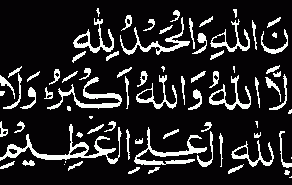 نَ اللهِ وَالْحَمْدُ لِلّٰهِ
اِلَّا اللهُ وَاللهُ اَكْبَرُ وَلَا
بِاللهِ الْعَلِىِّ الْعَظِيْمِ